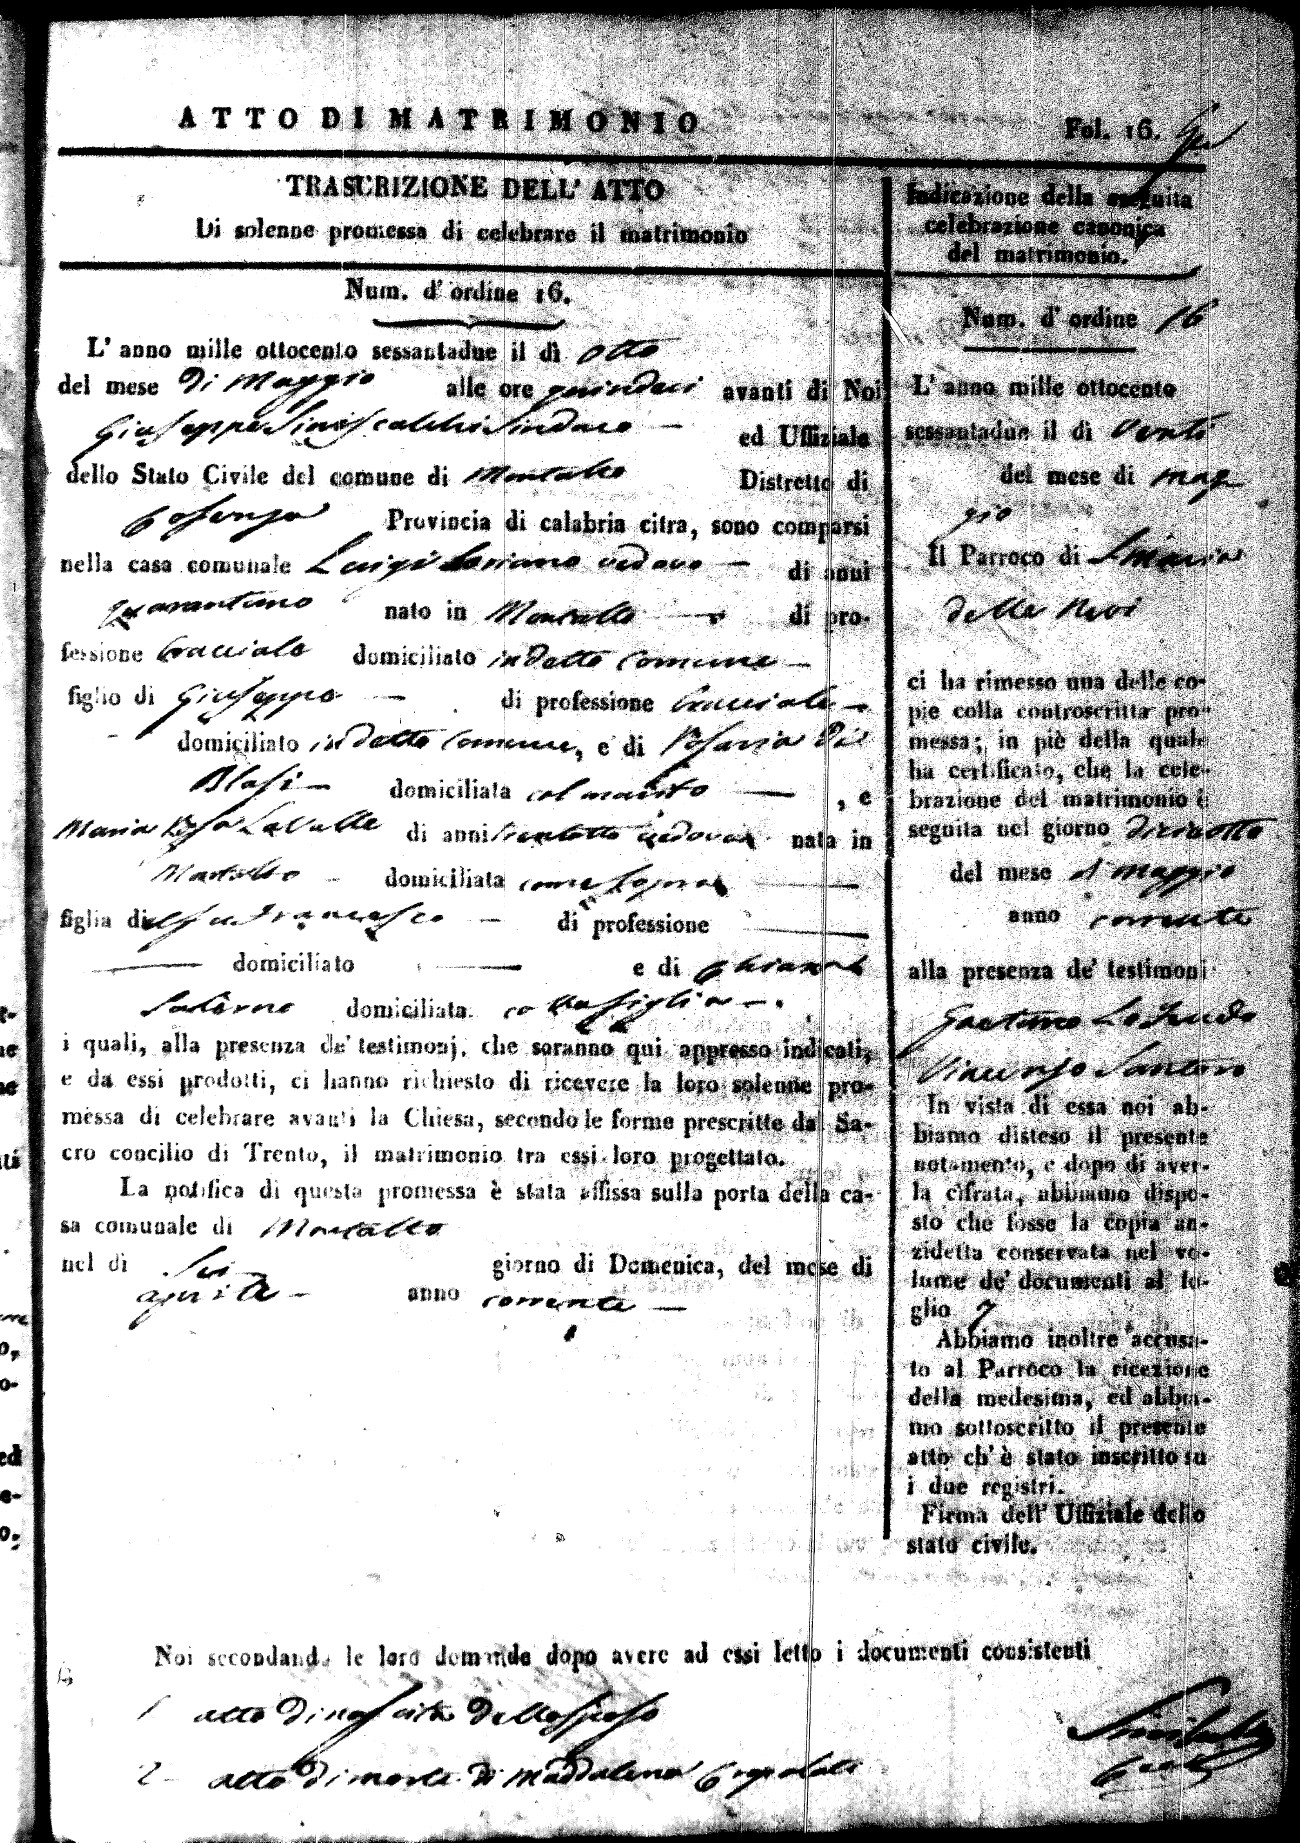 ATTO DI MATRIMONIO
Fol. 16.
TRASCRIZIONE DELL' ATTO
Di solenne promessa di celebrare il matrimonio
Num. d' ordine 16.
L' anno mille ottocento sessantadue il dì otto
del mese di Maggio alle ore quindeci avanti di Noi
Giuseppe Siniscalchi Sindaco — ed Uffiziale
dello Stato Civile del comune di Montalto Distretto di
Cosenza Provincia di calabria citra, sono comparsi
nella casa comunale Luigi vedovo — di anni
nato in Montalto — di pro-
fessione bracciale domiciliato in detto comune —
figlio di Giuseppe — di professione bracciale —
domiciliato in detto comune, e di Rosaria Di
Blasi — domiciliata col marito — , e
Maria Rosa La Valle di anni trentotto vedova nata in
Montalto — domiciliata come sopra —
figlia di fu Francesco — di professione —
— domiciliato — e di Chiara
Salerno domiciliata colla figlia — .
i quali, alla presenza de' testimonj, che saranno qui appresso indicati,
e da essi prodotti, ci hanno richiesto di ricevere la loro solenne pro-
messa di celebrare avanti la Chiesa, secondo le forme prescritte dal Sa-
cro concilio di Trento, il matrimonio tra essi loro progettato.
La notifica di questa promessa è stata affissa sulla porta della ca-
sa comunale di Montalto
nel di Sei giorno di Domenica, del mese di
aprile — anno corrente —
Noi secondando le loro domande dopo avere ad essi letto i documenti consistenti
1 atto di nascita dello sposo
2 — atto di morte di Maddalena
Indicazione della seguita
celebrazione canonica
del matrimonio.
Num. d' ordine 16
L' anno mille ottocento
sessantadue il di venti
del mese di mag
gio
Il Parroco di S Maria
della Nevi
ci ha rimesso una delle co-
pie colla controscritta pro-
messa; in piè della quale
ha certificato, che la cele-
brazione del matrimonio è
seguita nel giorno dieciotto
del mese di maggio
anno corrente
alla presenza de' testimoni
Gaetano
Vincenzo Santoro
In vista di essa noi ab-
biamo disteso il presente
notamento, e dopo di aver-
la cifrata, abbiamo dispo-
sto che fosse la copia an-
zidetta conservata nel vo-
lume de' documenti al fo-
glio 7
Abbiamo inoltre accusa-
to al Parroco la ricezione
della medesima, ed abbia-
mo sottoscritto il presente
atto ch' è stato inscritto su
i due registri.
Firma dell' Uffiziale dello
stato civile.